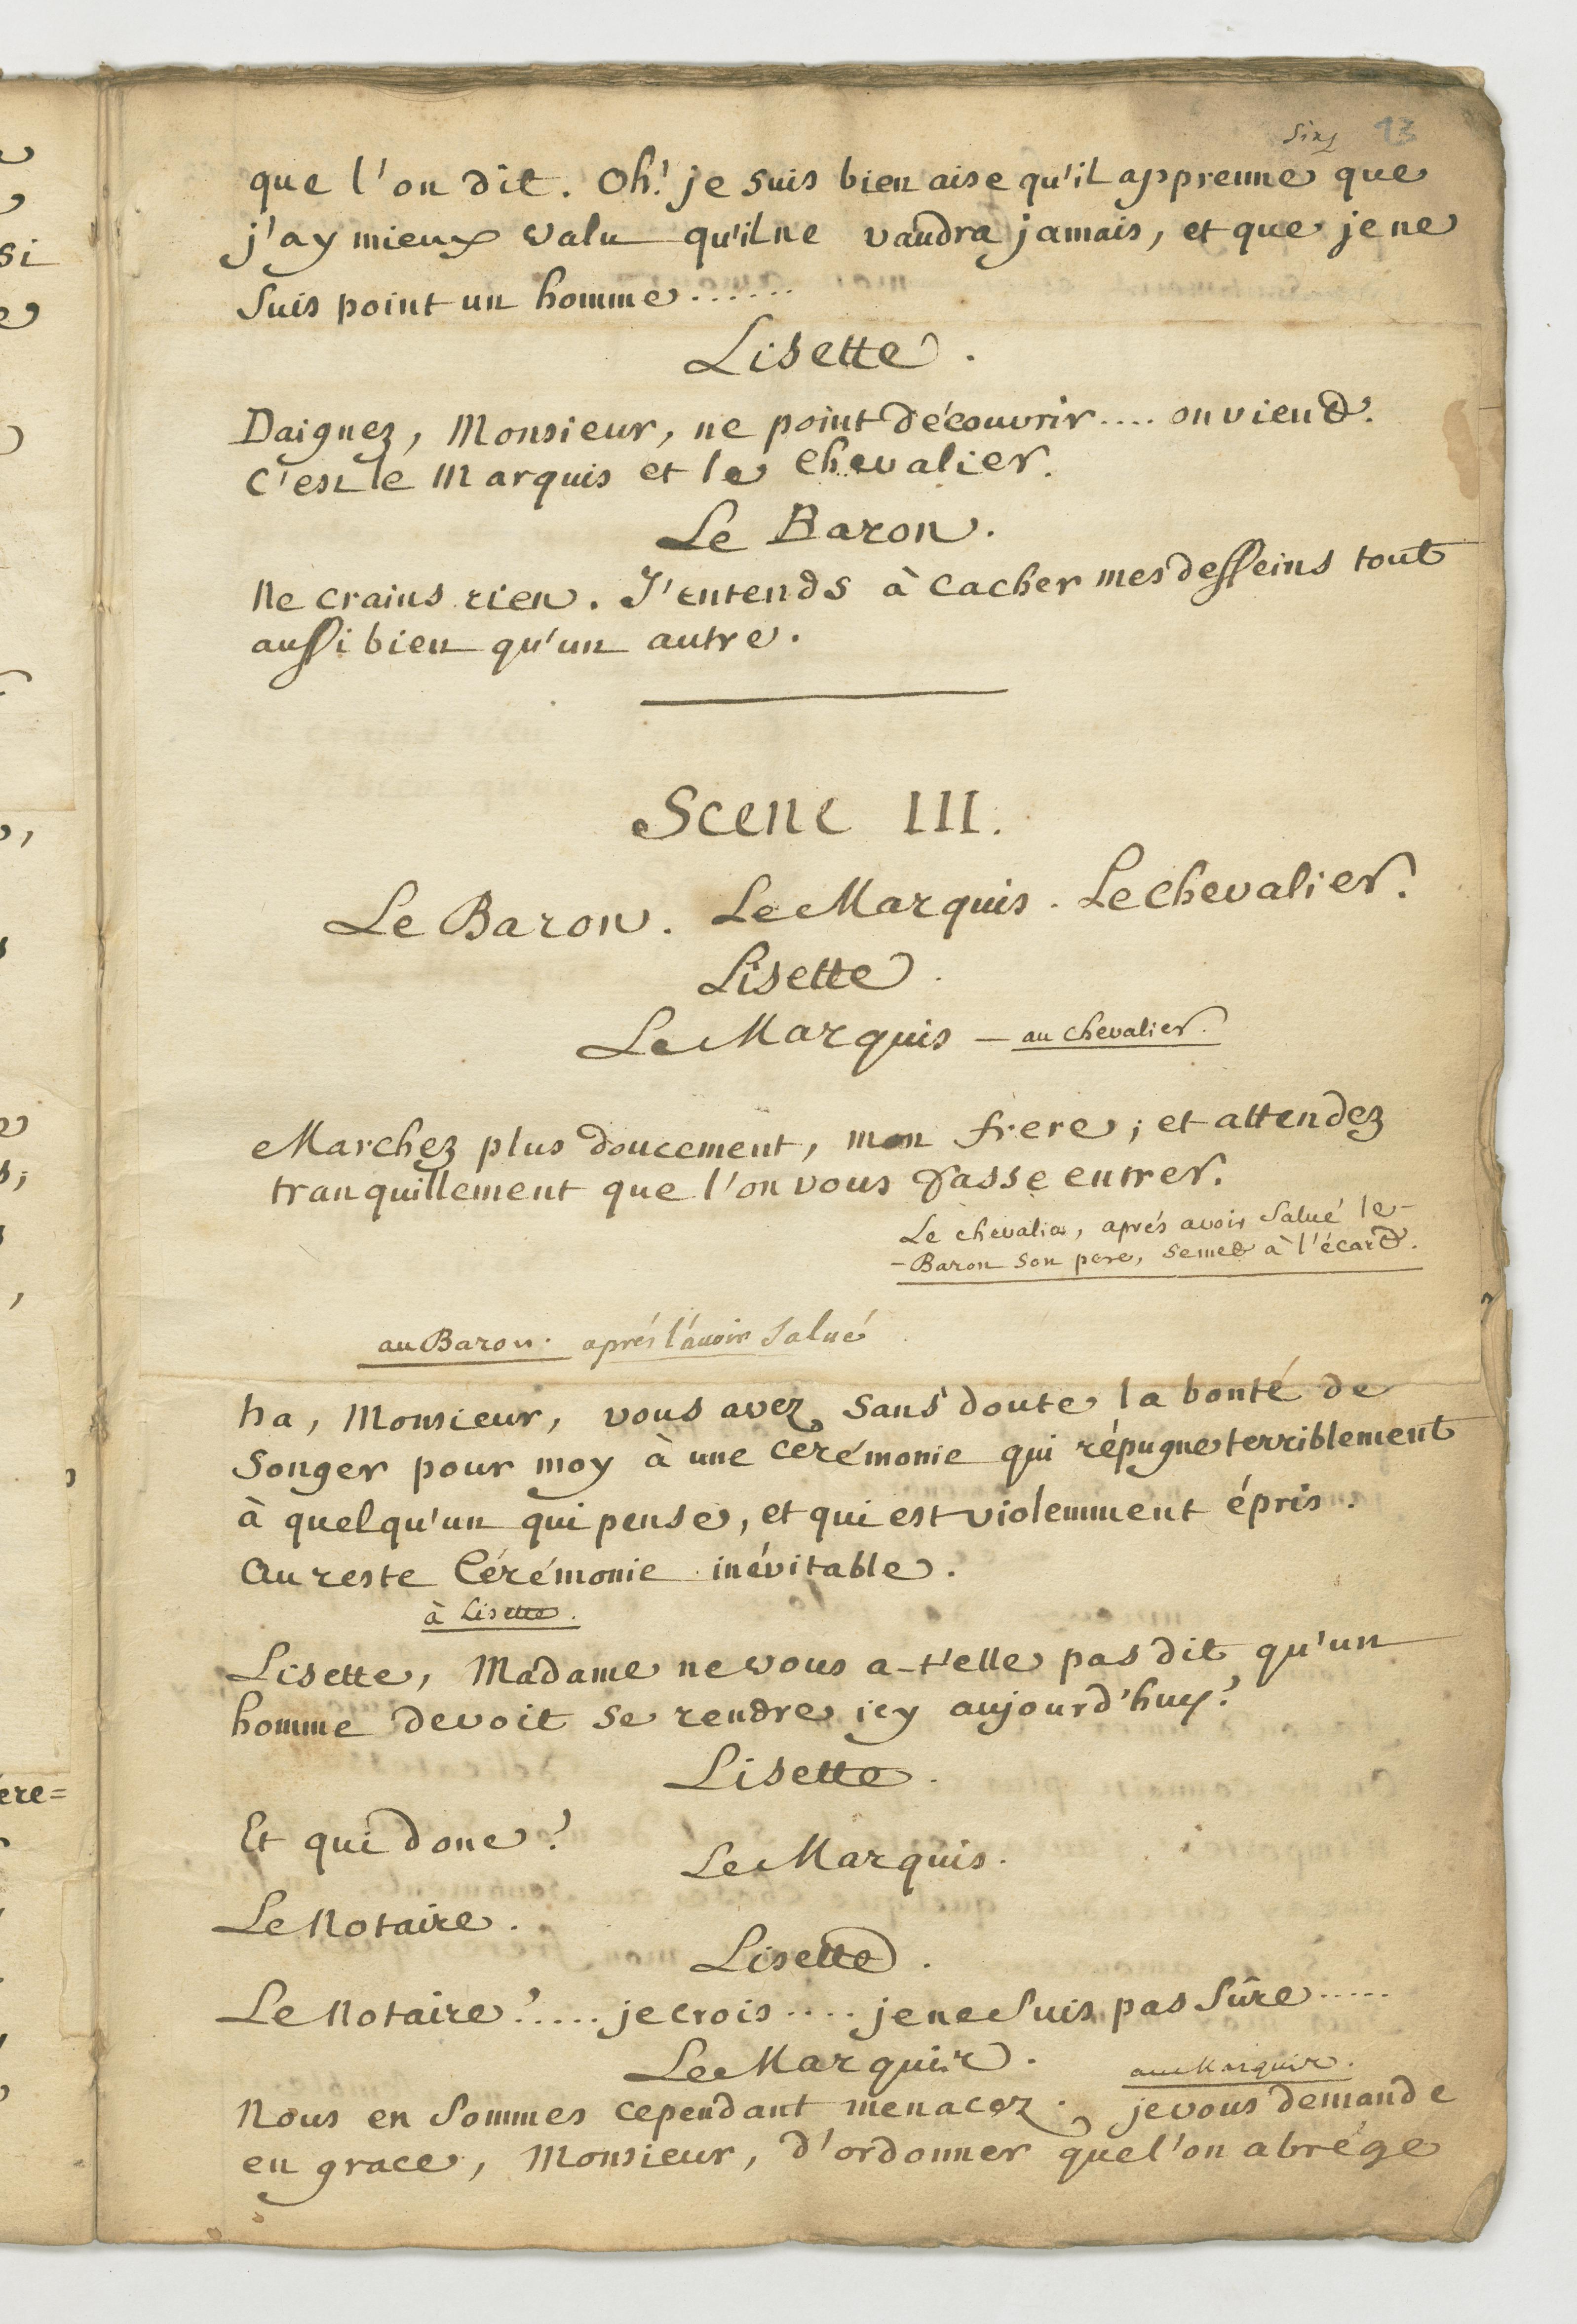 13
que l'on dit. Oh! je suis bien aise qu'il apprenne que
j'ay mieux valu qu'il ne vaudra jamais, et que je ne
suis point un homme......
Lisette.
Daignez, Monsieur, ne point découvrir.... on vient.
c'est le Marquis et le chevalier.
Le Baron.
Ne crains rien. J'entends à cacher mes desseins tout
aussi bien qu'un autre.
Scene III.
Le Baron. Le Marquis. Le chevalier.
Lisette.
Le Marquis — au chevalier.
Marchez plus doucement, mon frere; et attendez
tranquillement que l'on vous fasse entrer.
Le chevalier, aprés avoir salué le-
-Baron son pere, se met à l'écart.
au Baron. aprés l'avoir salué
ha, Monsieur, vous avez sans doute la bonté de
songer pour moy à une cérémonie qui répugne terriblement
à quelqu'un qui pense, et qui est violemment épris.
au reste Cérémonie inévitable.
à Lisette.
Lisette, Madame ne vous a-t'elle pas dit qu'un
homme devoit se rendre icy aujourd'huy?
Lisette.
Et qui donc?
Le Marquis.
Le Notaire.
Lisette.
Le Notaire?..... je crois.... je ne suis pas sûre.....
Le Marquis.
au Marquis.
Nous en sommes cependant menacez. je vous demande
en grace, Monsieur, d'ordonner que l'on abrége